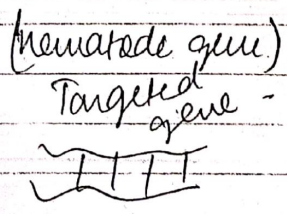 (nematode gene)
Targeted
gene -